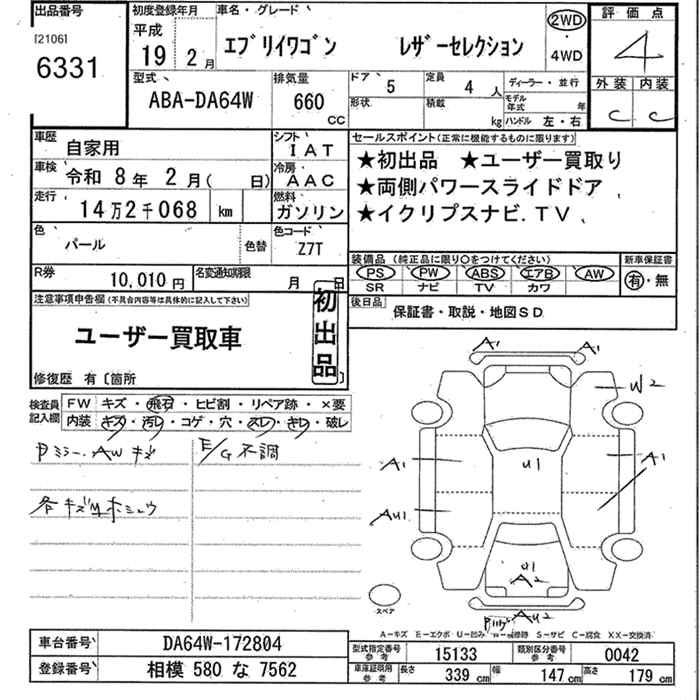 出品番号
[2106]
6331
初度登録年月
平成
19 年 2 月
車名・グレード
エブリイワゴン レザーセレクション
2WD
・
4WD
評価点
4
外装 内装
C C
型式
ABA-DA64W
排気量
660
CC
ドア
5
定員
4 人
ディーラー・並行
形状
積載
kg
モデル年式
年
ハンドル 左・右
車歴
自家用
シフト
IAT
車検
令和 8年 2月( 日)
冷房
AAC
走行
14万2千068 km
燃料
ガソリン
色
パール
色替
色コード
Z7T
R券
10,010円
名変通知期限
月 日
セールスポイント(正常に機能するものに限ります)
★初出品 ★ユーザー買取り
★両側パワースライドドア
★イクリプスナビ.TV
装備品(純正品に限り○をつけてください)
PS PW ABS エアB AW
SR ナビ TV カワ
新車保証書
有・無
後日品
保証書・取説・地図SD
注意事項申告欄(不具合内容等は具体的に記入して下さい)
ユーザー買取車
初出品
修復歴 有〔箇所 〕
検査員記入欄
FW キズ・飛石・ヒビ割・リペア跡・×要
内装 キズ・汚レ・コゲ・穴・スレ・キレ・破レ
Pミラー、AWキズ
E/G不調
各キズ凹ホシュウ
A1 A1
W2
A1
U1
A1
AU1
U1
A2
AU2
スペア
A-キズ E-エクボ U-凹み W-補修跡 S-サビ C-腐食 XX-交換済
車台番号
DA64W-172804
登録番号
相模 580 な 7562
型式指定番号
参考
15133
類別区分番号
参考
0042
車庫証明用
参考
長さ
339 cm
幅
147 cm
高さ
179 cm